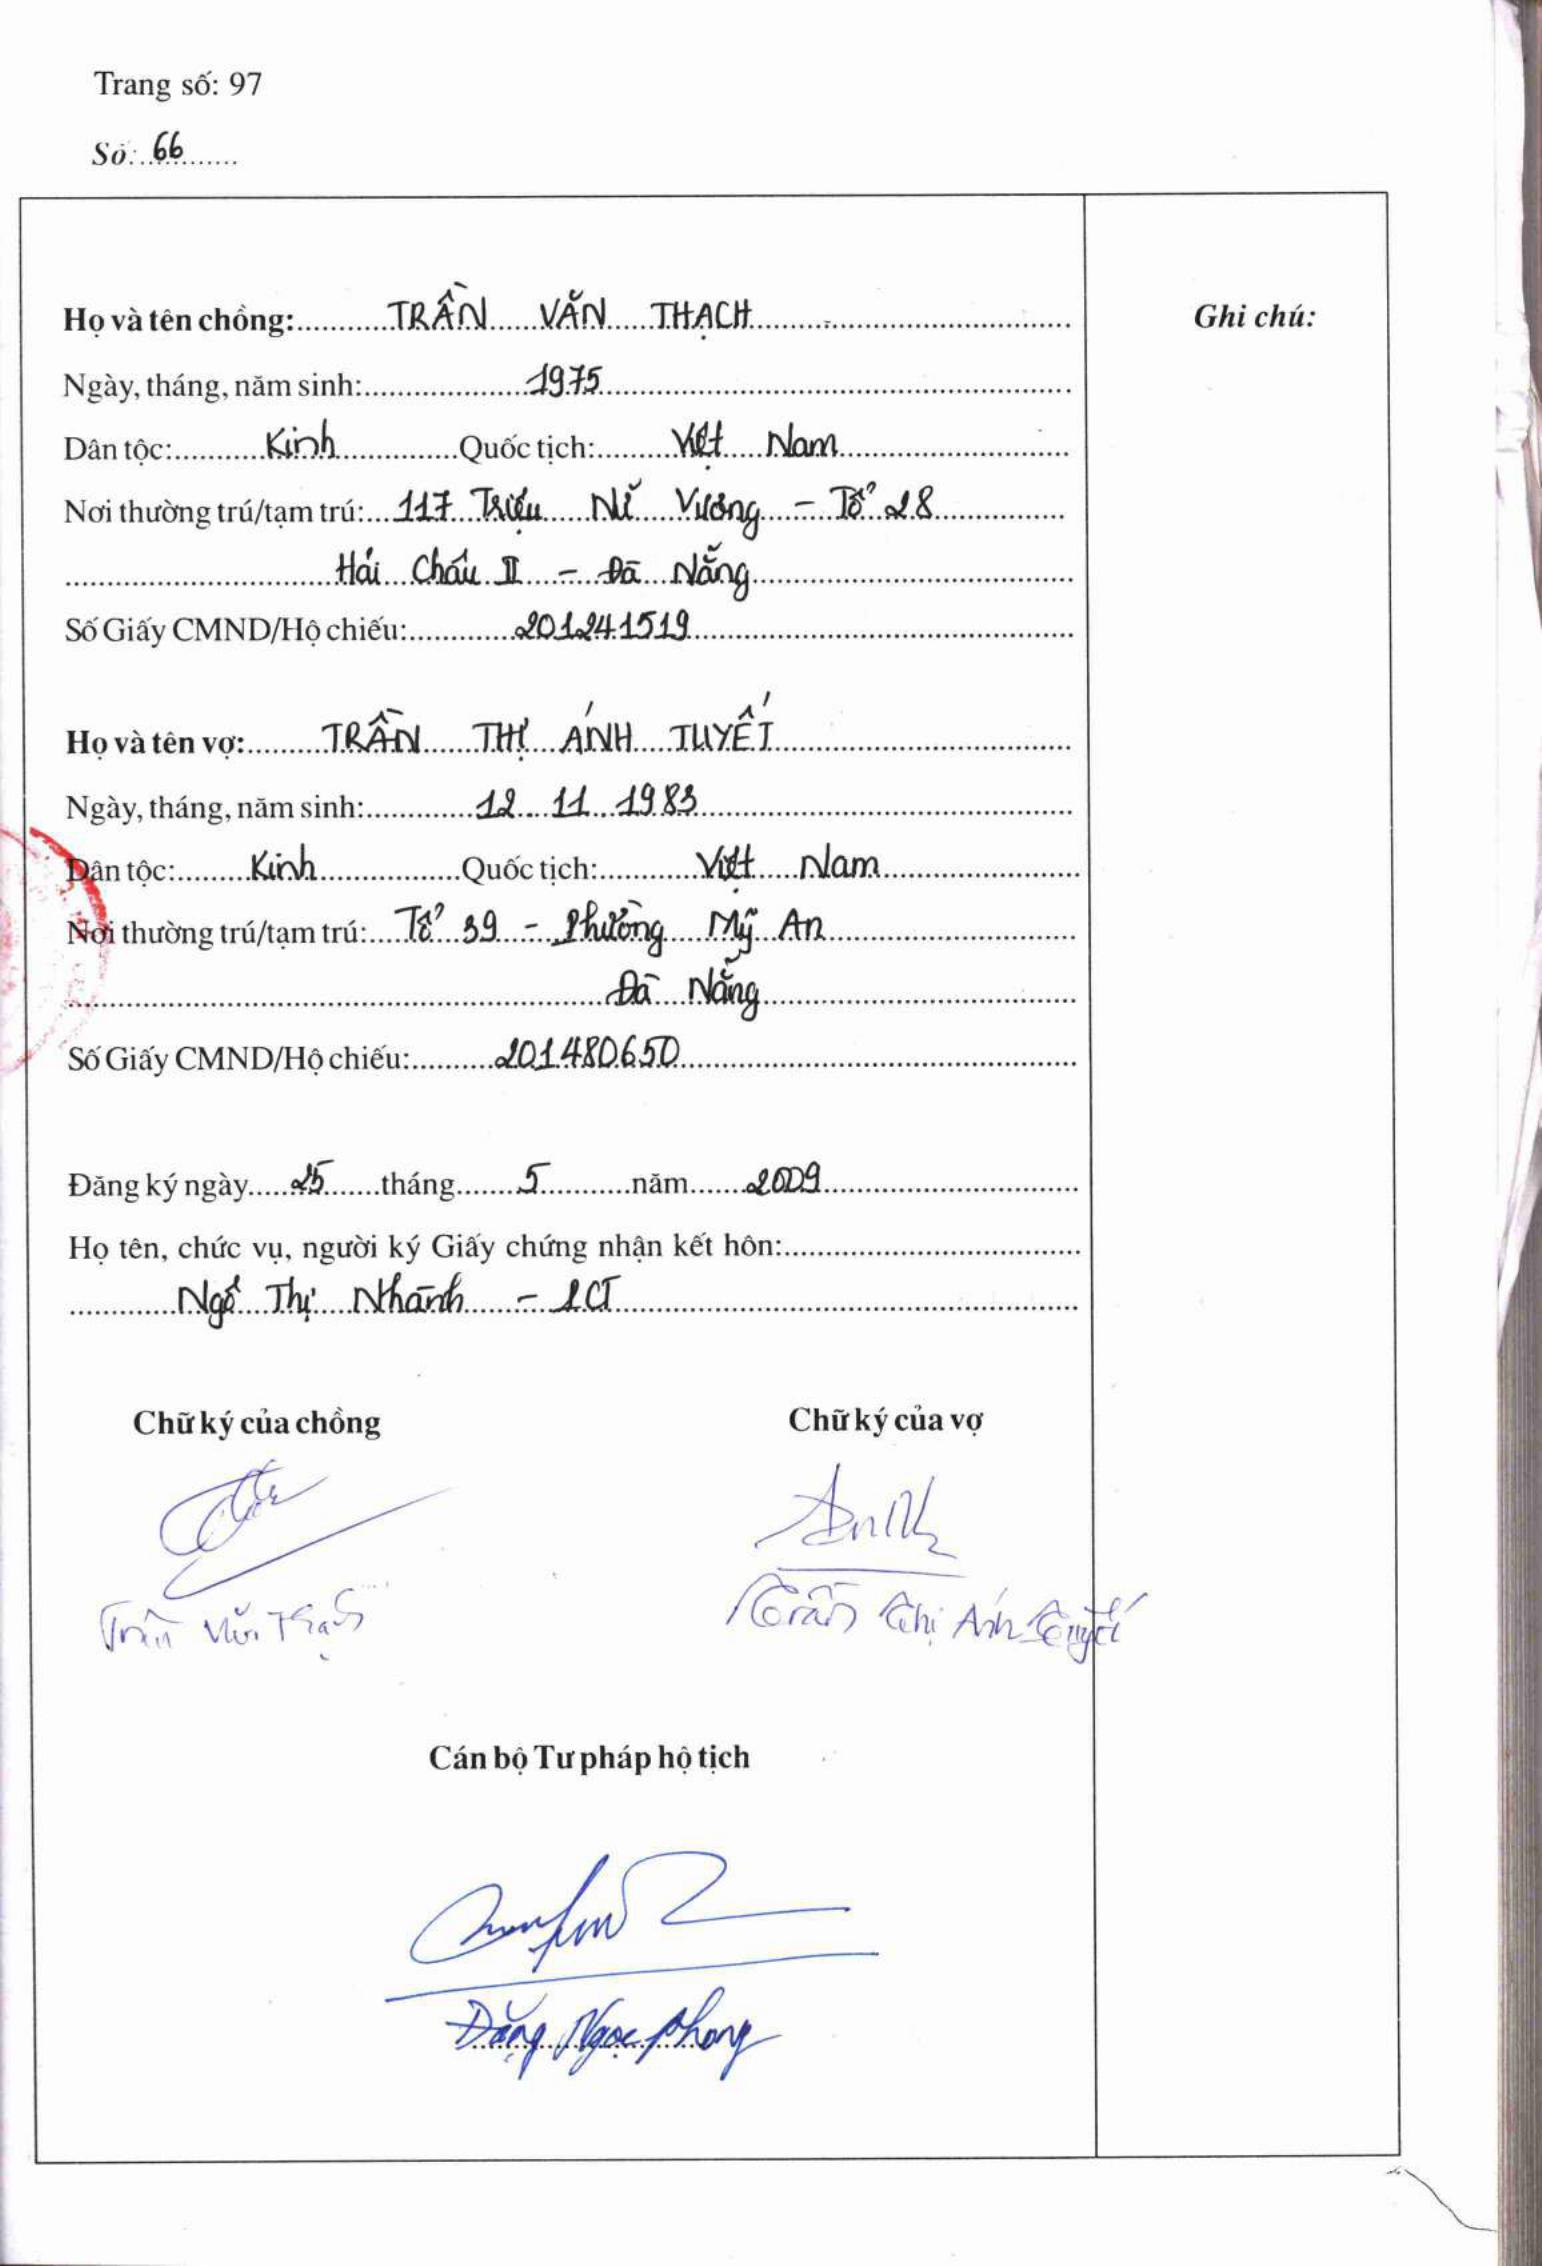 Trang số: 97
Số: 66
Họ và tên chồng: TRẦN VĂN THẠCH
Ghi chú:
Ngày, tháng, năm sinh: 1975
Dân tộc: Kinh Quốc tịch: Việt Nam
Nơi thường trú/tạm trú: 117 Triệu Nữ Vương - Tổ 28
Hải Châu II - Đà Nẵng
Số Giấy CMND/Hộ chiếu: 201241519
Họ và tên vợ: TRẦN THỊ ÁNH TUYẾT
Ngày, tháng, năm sinh: 12 11 1983
Dân tộc: Kinh Quốc tịch: Việt Nam
Nơi thường trú/tạm trú: Tổ 39 - Phường Mỹ An
Đà Nẵng
Số Giấy CMND/Hộ chiếu: 201480650
Đăng ký ngày 25 tháng 5 năm 2009
Họ tên, chức vụ, người ký Giấy chứng nhận kết hôn:
Ngô Thị Nhành - PCT
Chữ ký của chồng Chữ ký của vợ
Trần Văn Thạch Trần Thị Ánh Tuyết
Cán bộ Tư pháp hộ tịch
Đặng Ngọc Phong